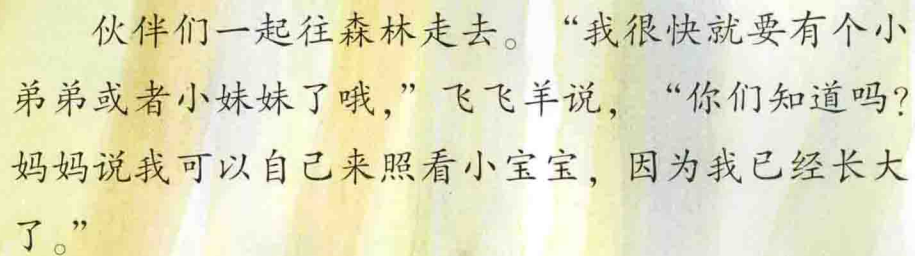 伙伴们一起往森林走去。“我很快就要有个小
弟弟或者小妹妹了哦,”飞飞羊说,“你们知道吗?
妈妈说我可以自己来照看小宝宝,因为我已经长大
了。”